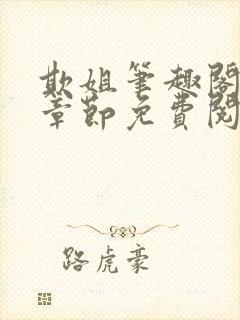 欺姐筆趣閣
章節免費閱
路虎豪